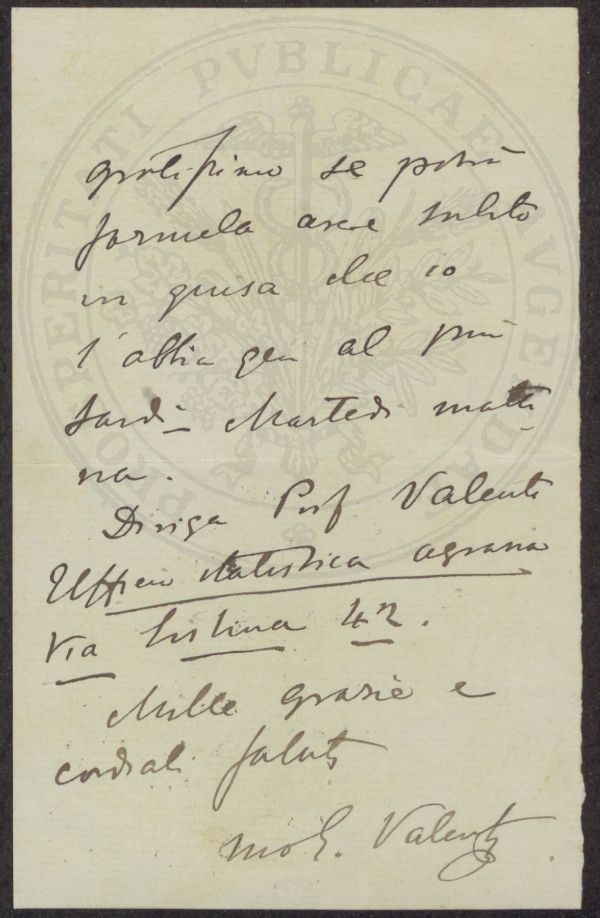 PROSPERITATI PVBLICAE AVGENDAE
gratissimo se potrà
farmela avere subito
in guisa che io
l'abbia qui al più
tardi Martedì matti-
na.
Diriga Prof Valenti
Ufficio statistica agraria
Via Sistina 42.
Mille grazie e
cordiali saluti
Valenti